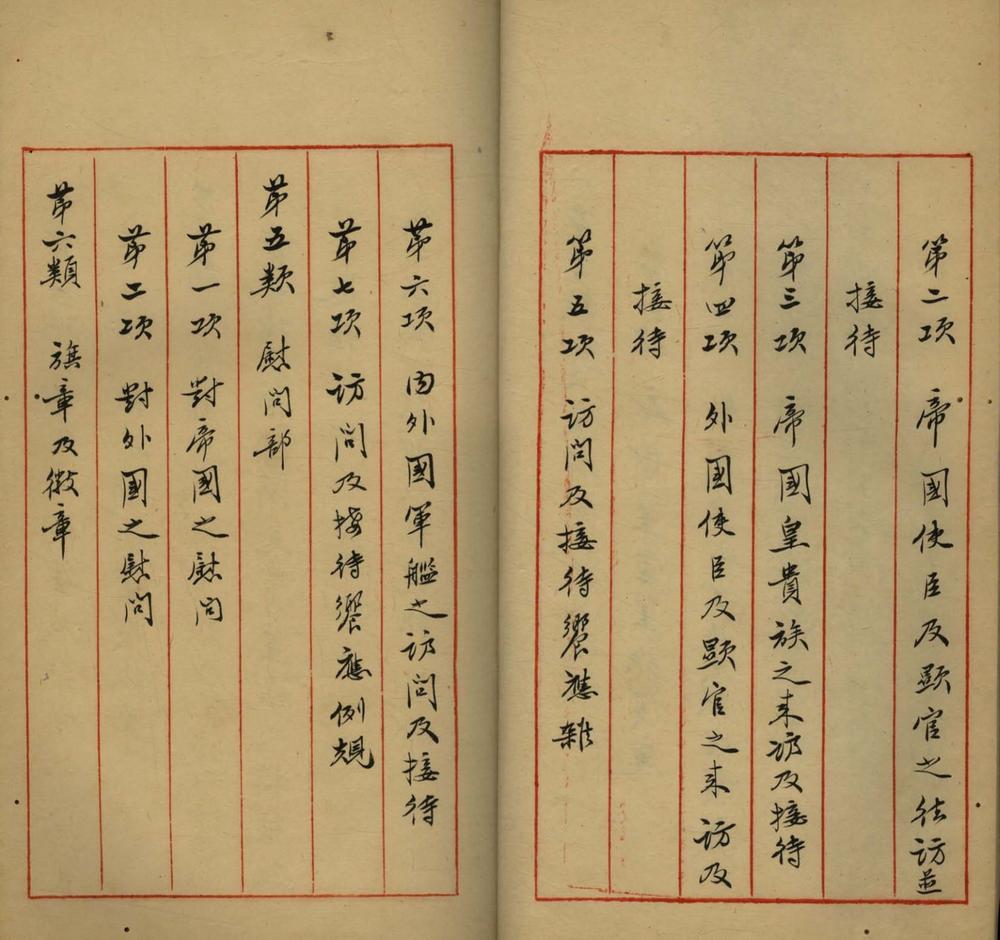 第二項 帝國使臣及顯官之往訪並
接待
第三項 帝國皇貴族之来訪及接待
第四項 外國使臣及顕官之来訪及
接待
第五項 訪問及接待饗應雑
第六項 内外國軍艦之訪問及接待
第七項 訪問及接待饗應例規
第五類 慰問部
第一項 對帝國之慰問
第二項 對外國之慰問
第六類 旗章及徽章